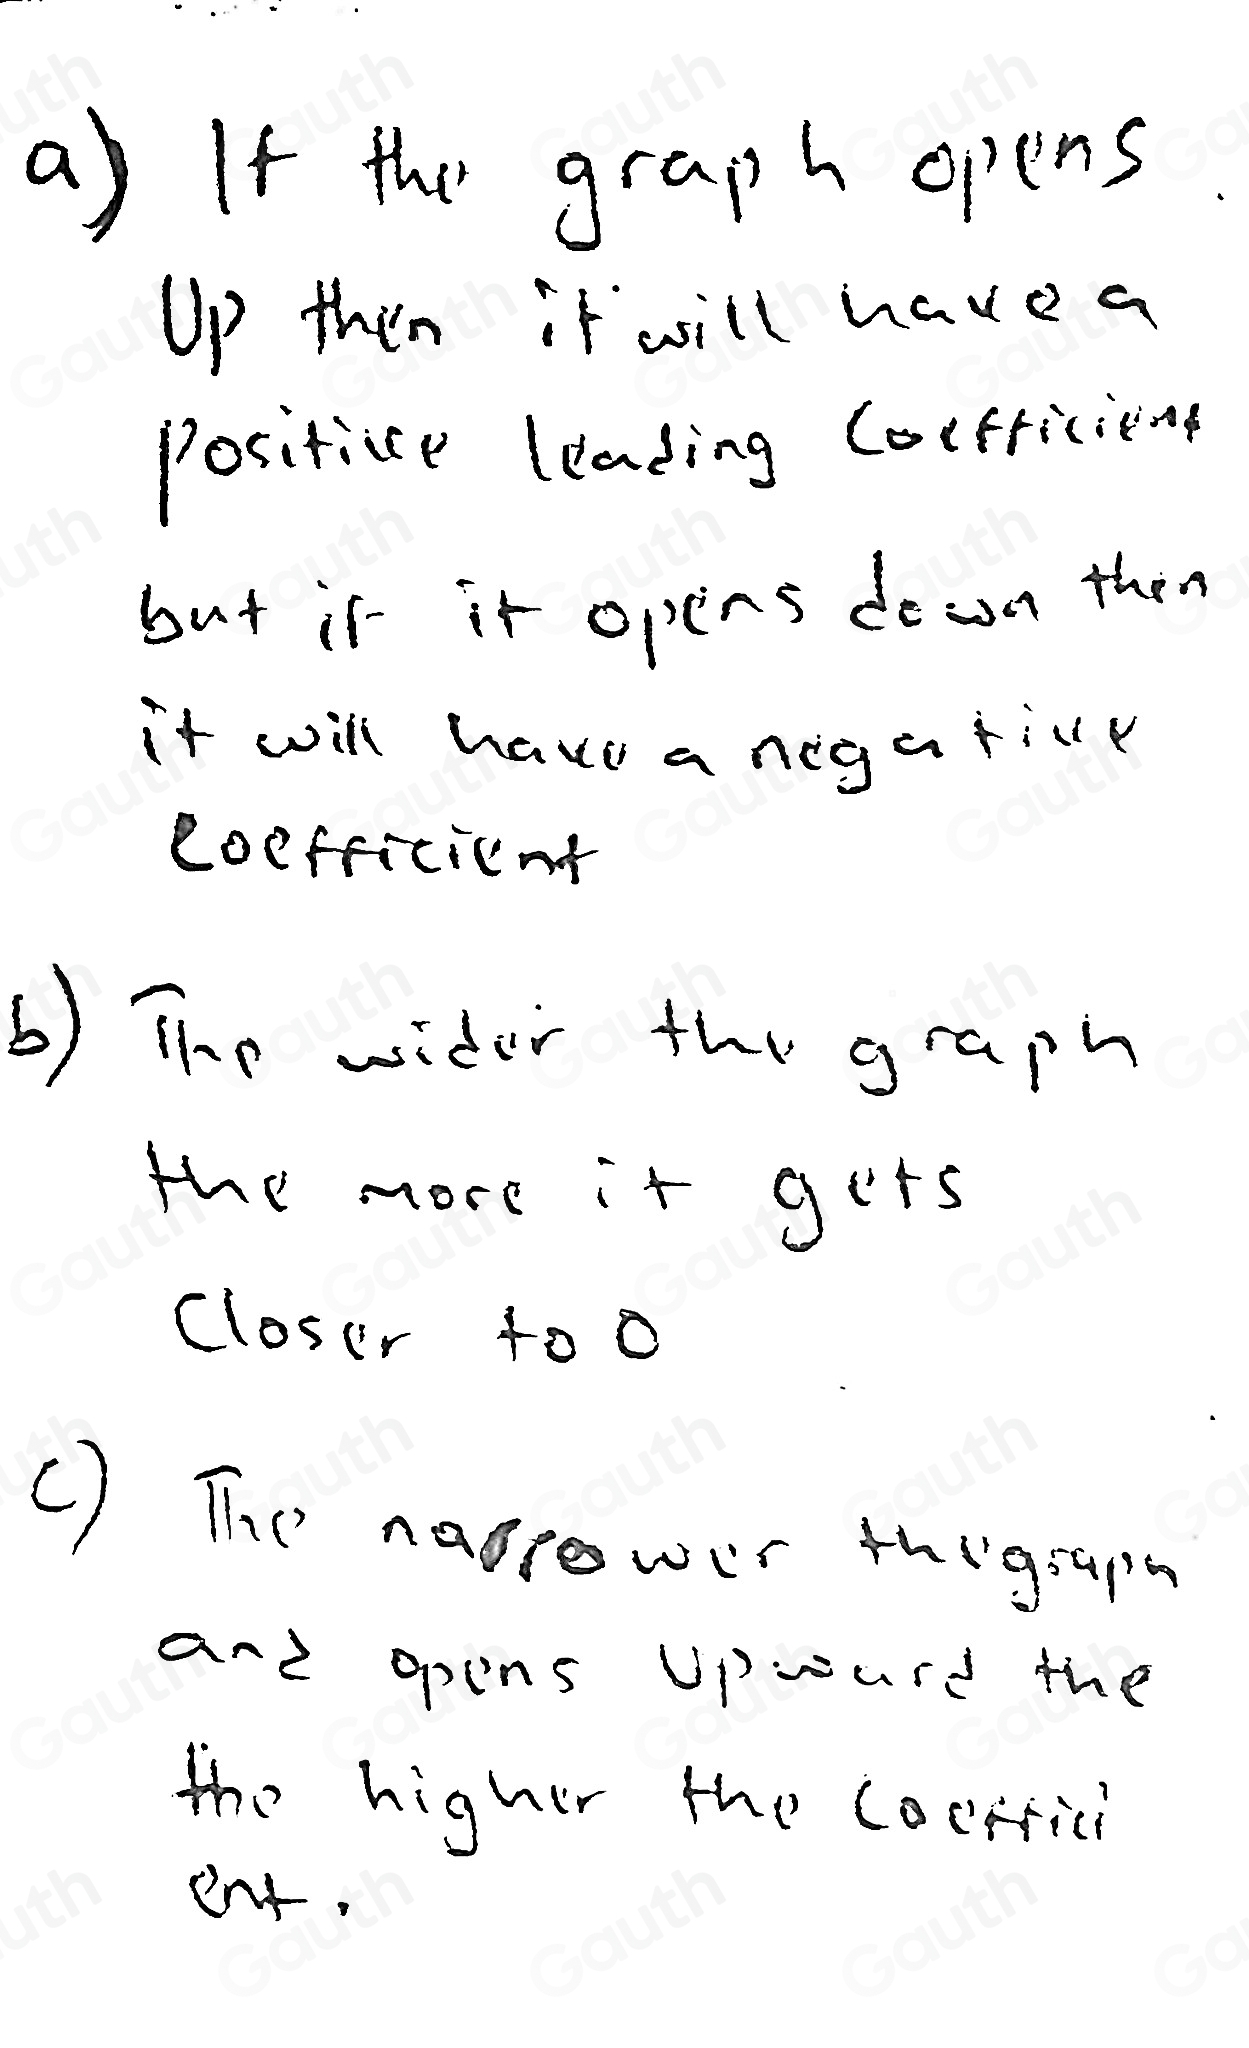 a) If the graph opens
Up then it will have a
positive leading Coefficient
but if it opens down then
it will have a negative
Coefficient
b) The wider the graph
the more it gets
Closer to 0
c) The narrower the graph
and opens upward the
the higher the Coeffici
ent.